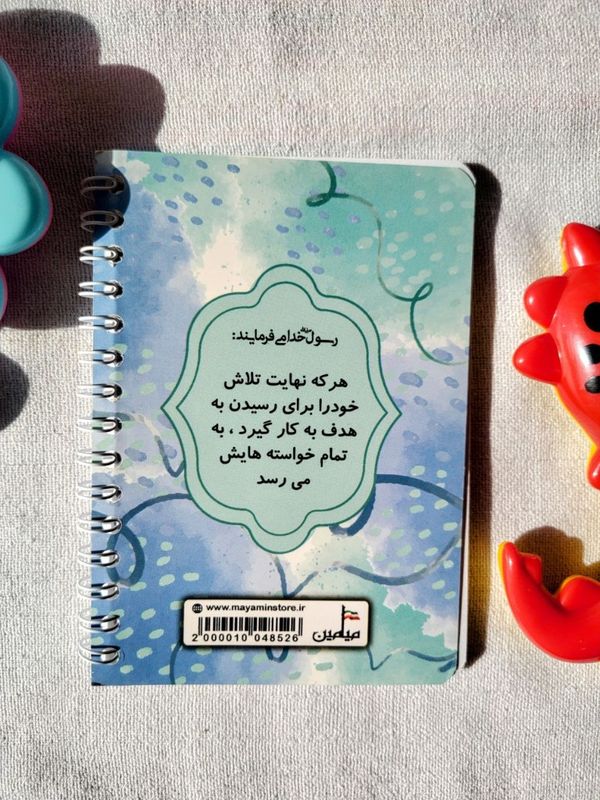 رسول خدا ﷺ می فرمایند:
هر که نهایت تلاش
خودرا برای رسیدن به
هدف به کار گیرد ، به
تمام خواسته هایش
می رسد
www.mayaminstore.ir
2 000010 048526
میامین